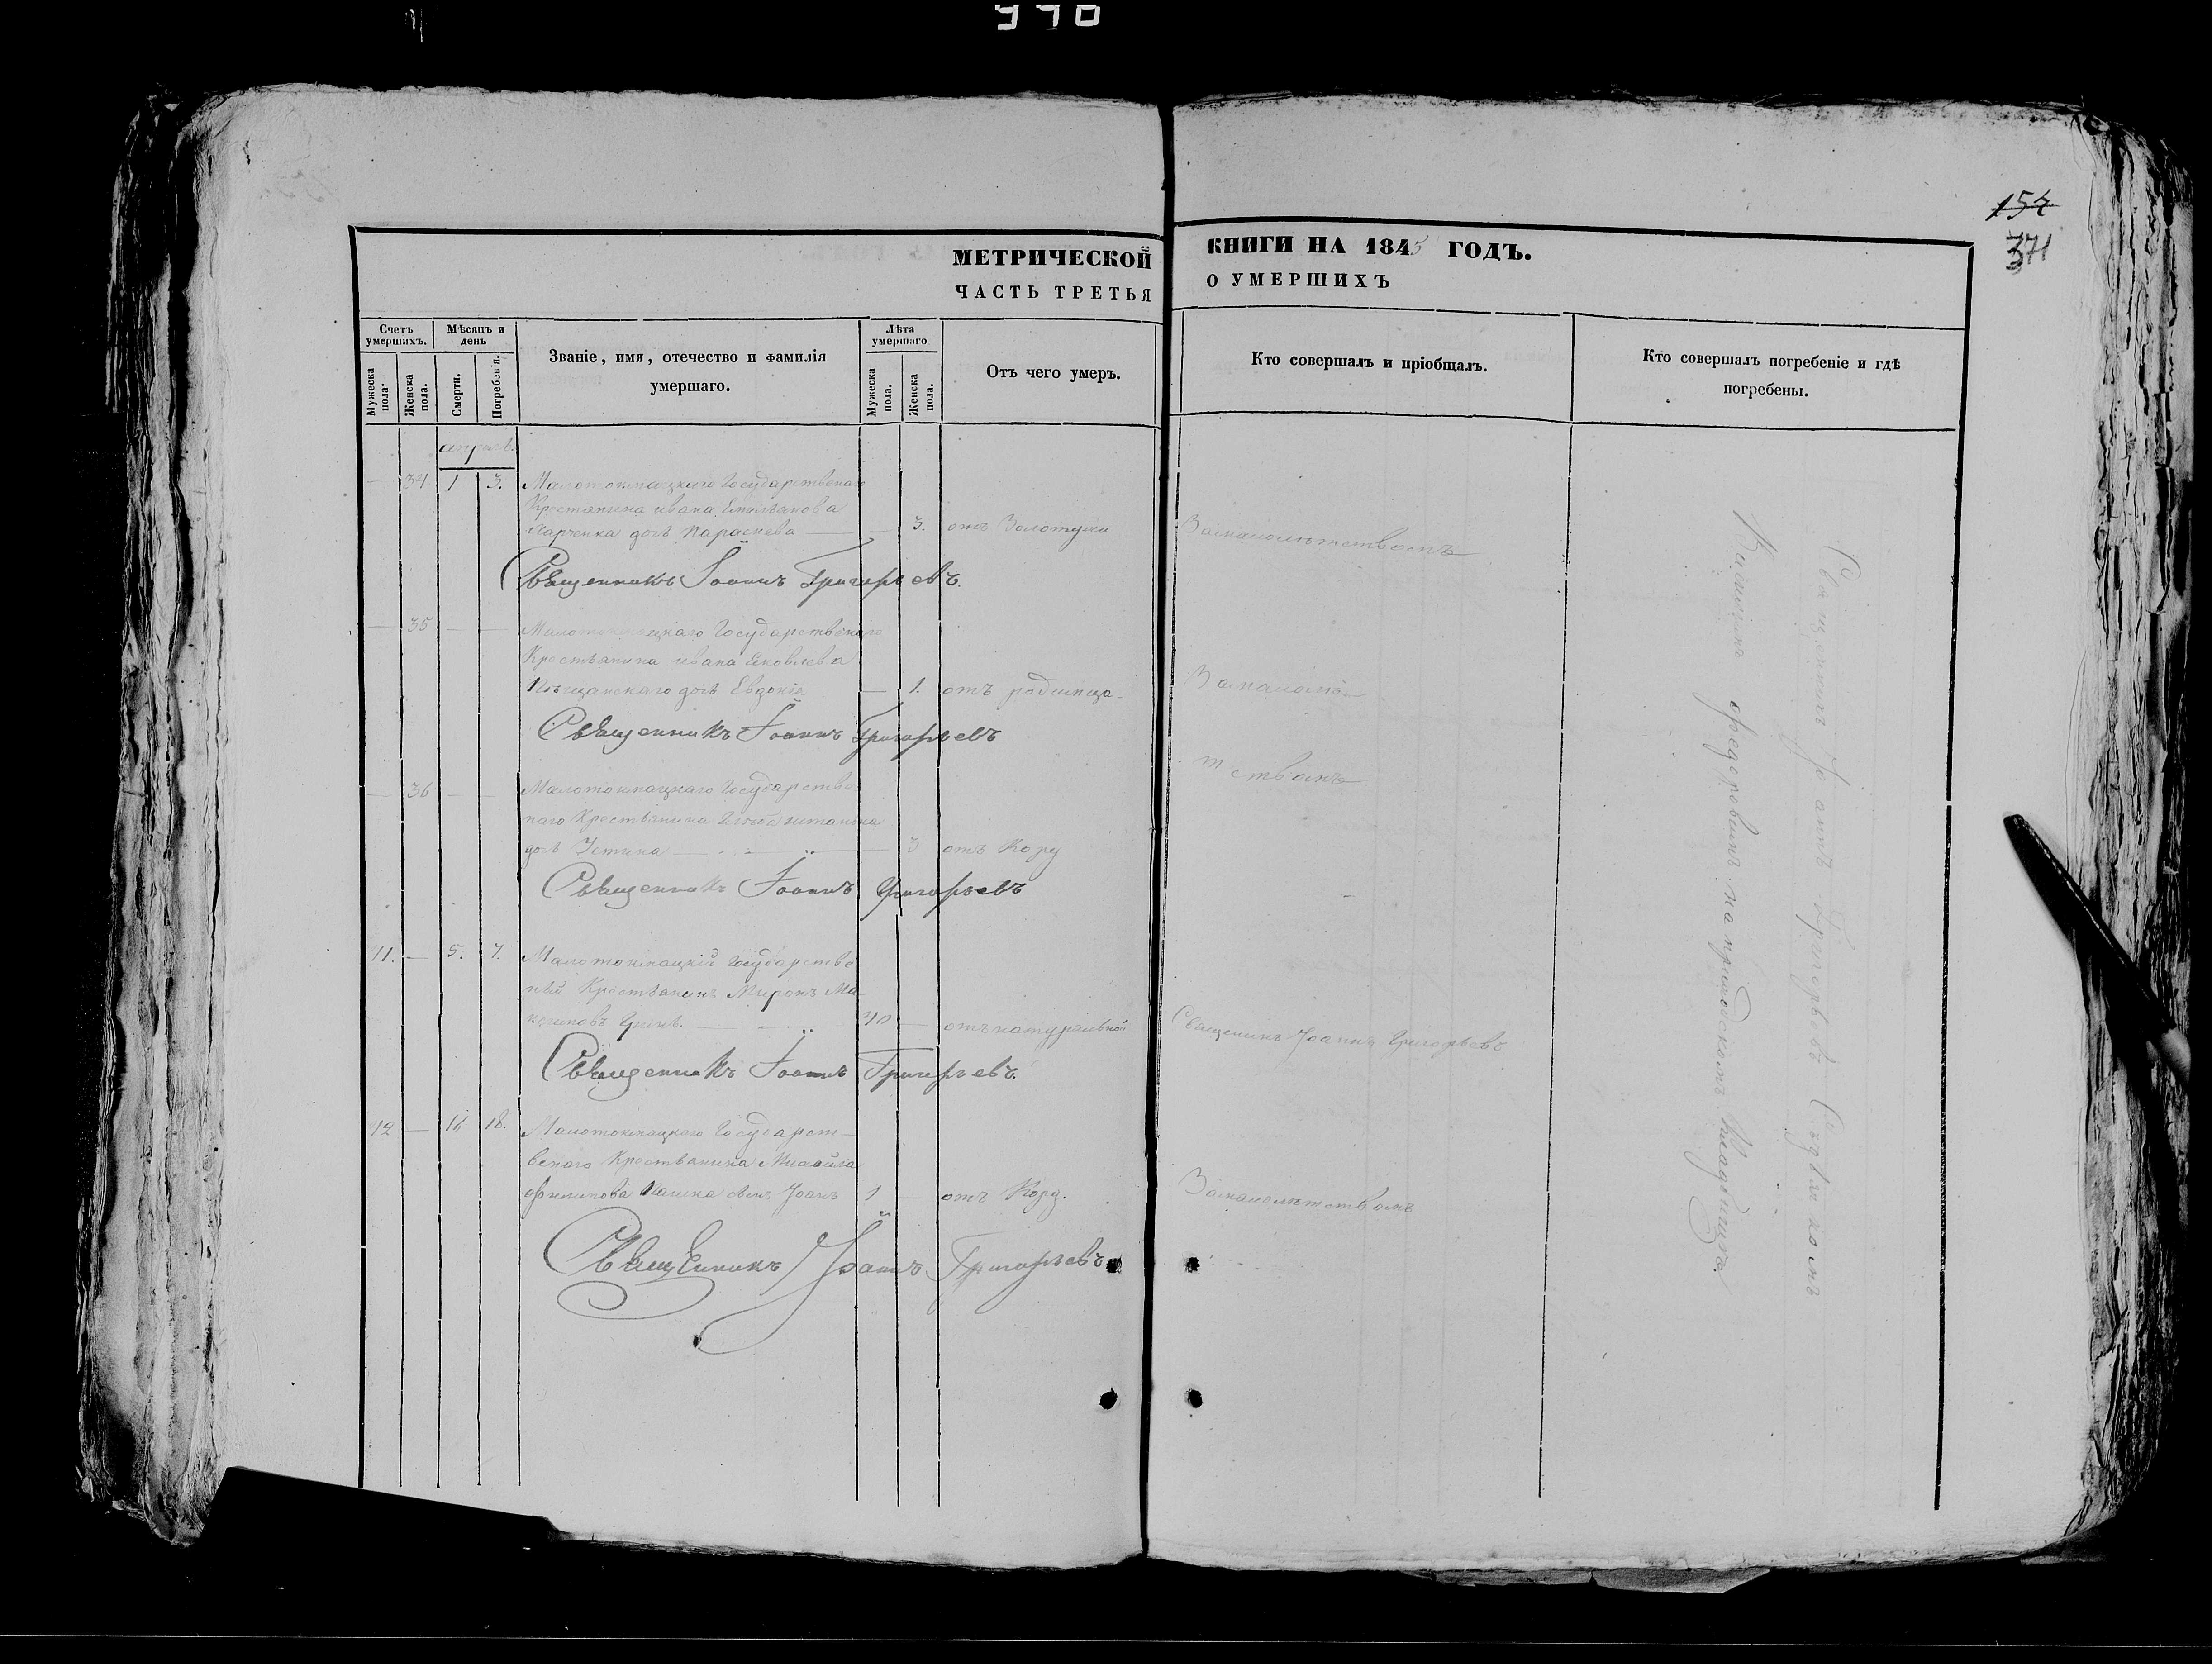 154
371
МЕТРИЧЕСКОЙ КНИГИ НА 1845 ГОДЪ.
ЧАСТЬ ТРЕТЬЯ О УМЕРШИХЪ
Счетъ умершихъ.
Мужеска пола.
Женска пола.
Мѣсяцъ и день
Смерти.
Погребенія.
Званіе, имя, отечество и фамилія
умершаго.
Лѣта умершаго
Мужеска пола.
Женска пола.
Отъ чего умеръ.
Кто совершалъ и пріобщалъ.
Кто совершалъ погребеніе и гдѣ
погребены.
34 1 3. Малотокмацкаго Государственаго
Крестянина ивана Емельянова
Харченка дочь Параскева — 3. отъ Золотухи
Священникъ Іоаннъ Григорьевъ.
35 — — Малотокмацкаго Государственаго
Крестьянина ивана Яковлева
дочь Евдокія — 1. отъ родимца
Священникъ Іоаннъ Григорьевъ
36 — — Малотокмацкаго Государстве
наго Крестьянина
дочь Устина — 3 отъ Кору
Священникъ Іоаннъ Григорьевъ
11. — 5. 7. Малотокмацкій Государстве
ный Крестьянинъ Миронъ
40 — отъ натуральной Священикъ Іоаннъ Григорьевъ
Священникъ Іоаннъ Григорьевъ.
12 — 16 18. Малотокмацкаго Государст-
венаго Крестьянина Михаила
Филипова сынъ Іоанъ 1 — отъ Кору.
Священникъ Іоаннъ Григорьевъ
За малолѣтствомъ
За малолѣ-
тствомъ
За малолѣтствомъ
Священикъ Іоаннъ Григорьевъ
на приходскомъ Кладбищѣ.